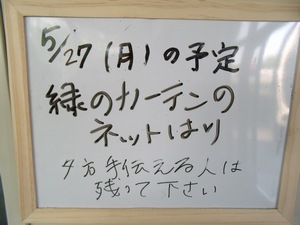 5/27(月)の予定
緑のカーテンの
ネットはり
夕方手伝える人は
残って下さい